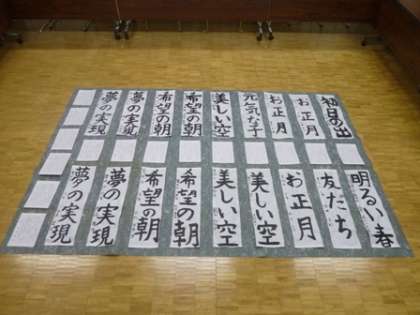 初日の出
お正月
お正月
元気な子
美しい空
希望の朝
希望の朝
夢の実現
夢の実現
明るい春
友だち
お正月
美しい空
美しい空
希望の朝
希望の朝
夢の実現
夢の実現